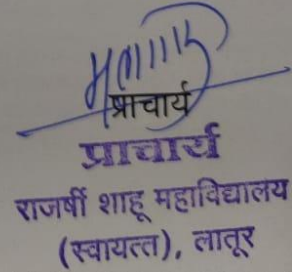 प्राचार्य
प्राचार्य
राजर्षी शाहू महाविद्यालय
(स्वायत्त), लातूर